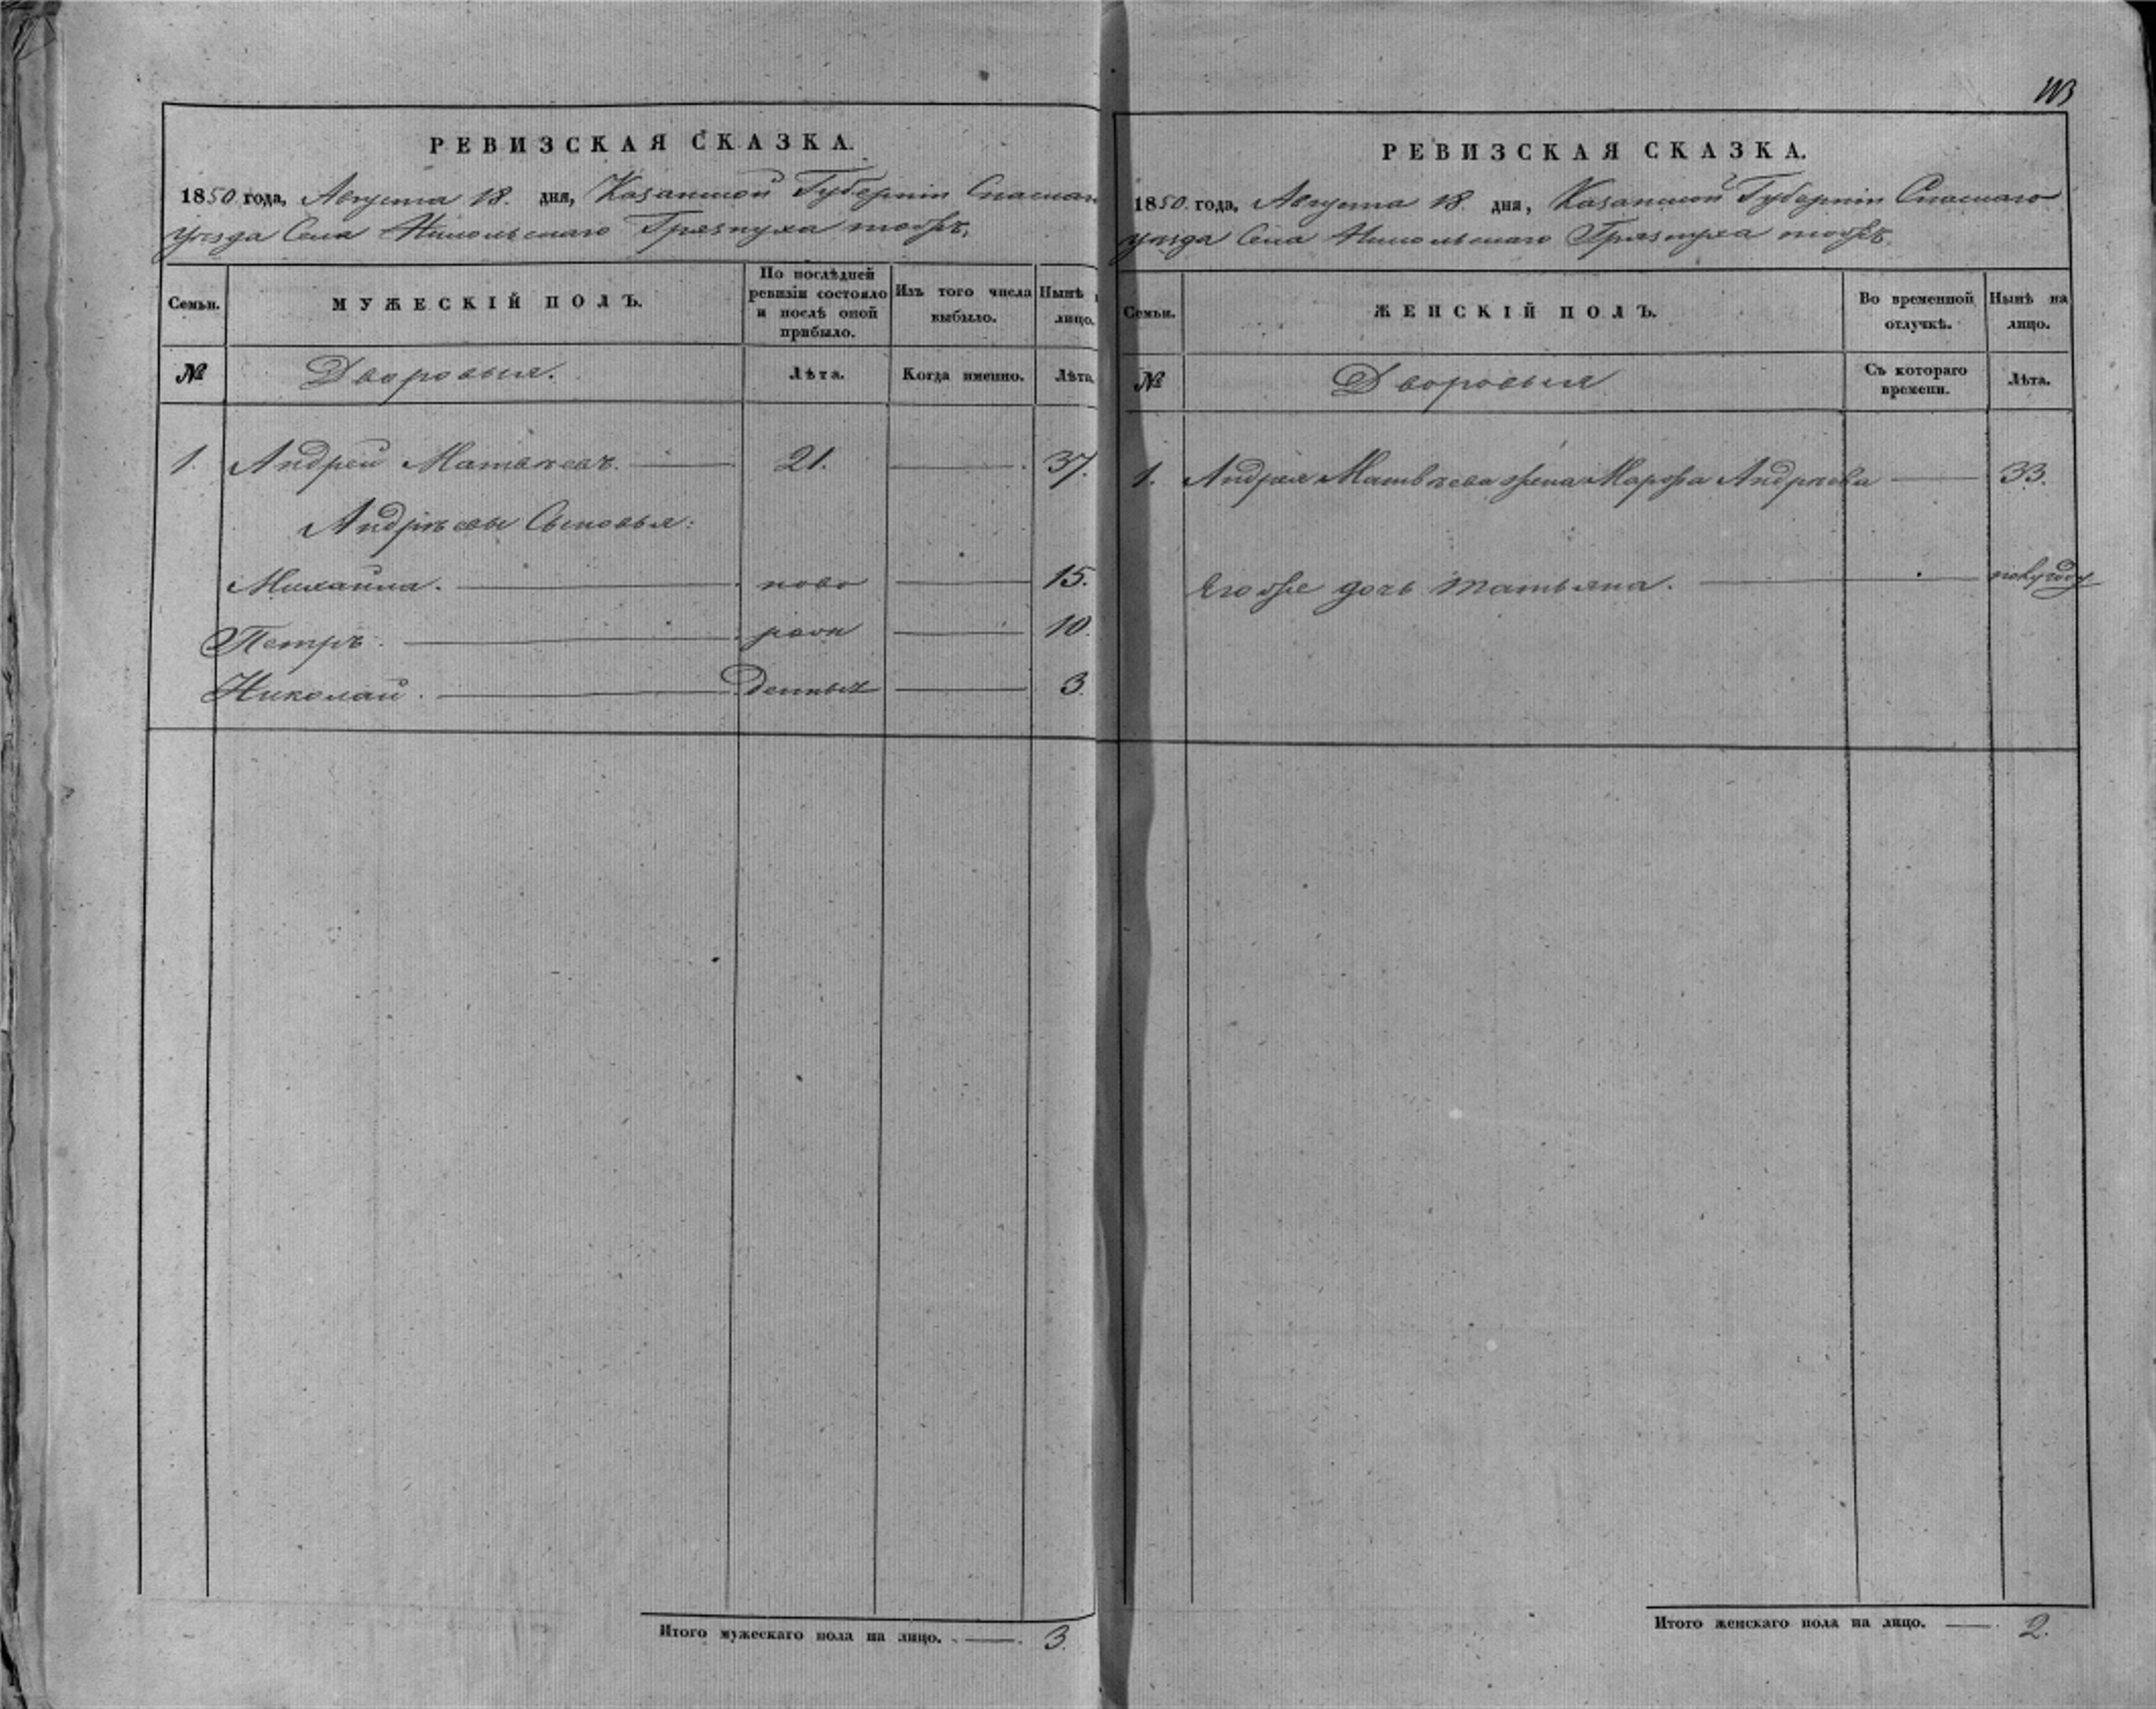 РЕВИЗСКАЯ СКАЗКА.
1850 года, Августа 18. дня, Казанской Губернiи Спаскаго
уѣзда Села Никольскаго Грязнуха тожъ,
Семьи.
МУЖЕСКІЙ ПОЛЪ.
По послѣдней ревизіи состояло и послѣ оной прибыло.
Изъ того числа выбыло.
Нынѣ лицо.
№
Дворовыя.
Лѣта.
Когда именно.
Лѣта.
1. Андрей Матвѣевъ. — 21. — 37.
Андрѣевы Сыновья:
Михайла. — ново — 15.
Петръ. — рож — 10.
Николай. — денных — 3.
Итого мужескаго пола на лицо. — 3.
РЕВИЗСКАЯ СКАЗКА.
1850. года, Августа 18. дня, Казанской Губернiи Спаскаго
уѣзда Села Никольскаго Грязнуха тожъ
Семьи.
ЖЕНСКІЙ ПОЛЪ.
Во временной отлучкѣ.
Нынѣ на лицо.
№
Дворовыя
Съ котораго времени.
Лѣта.
1. Андрея Матвѣева жена Марфа Андрѣева — 33.
Егоже дочь Татьяна. — полугоду
Итого женскаго пола на лицо. — 2.